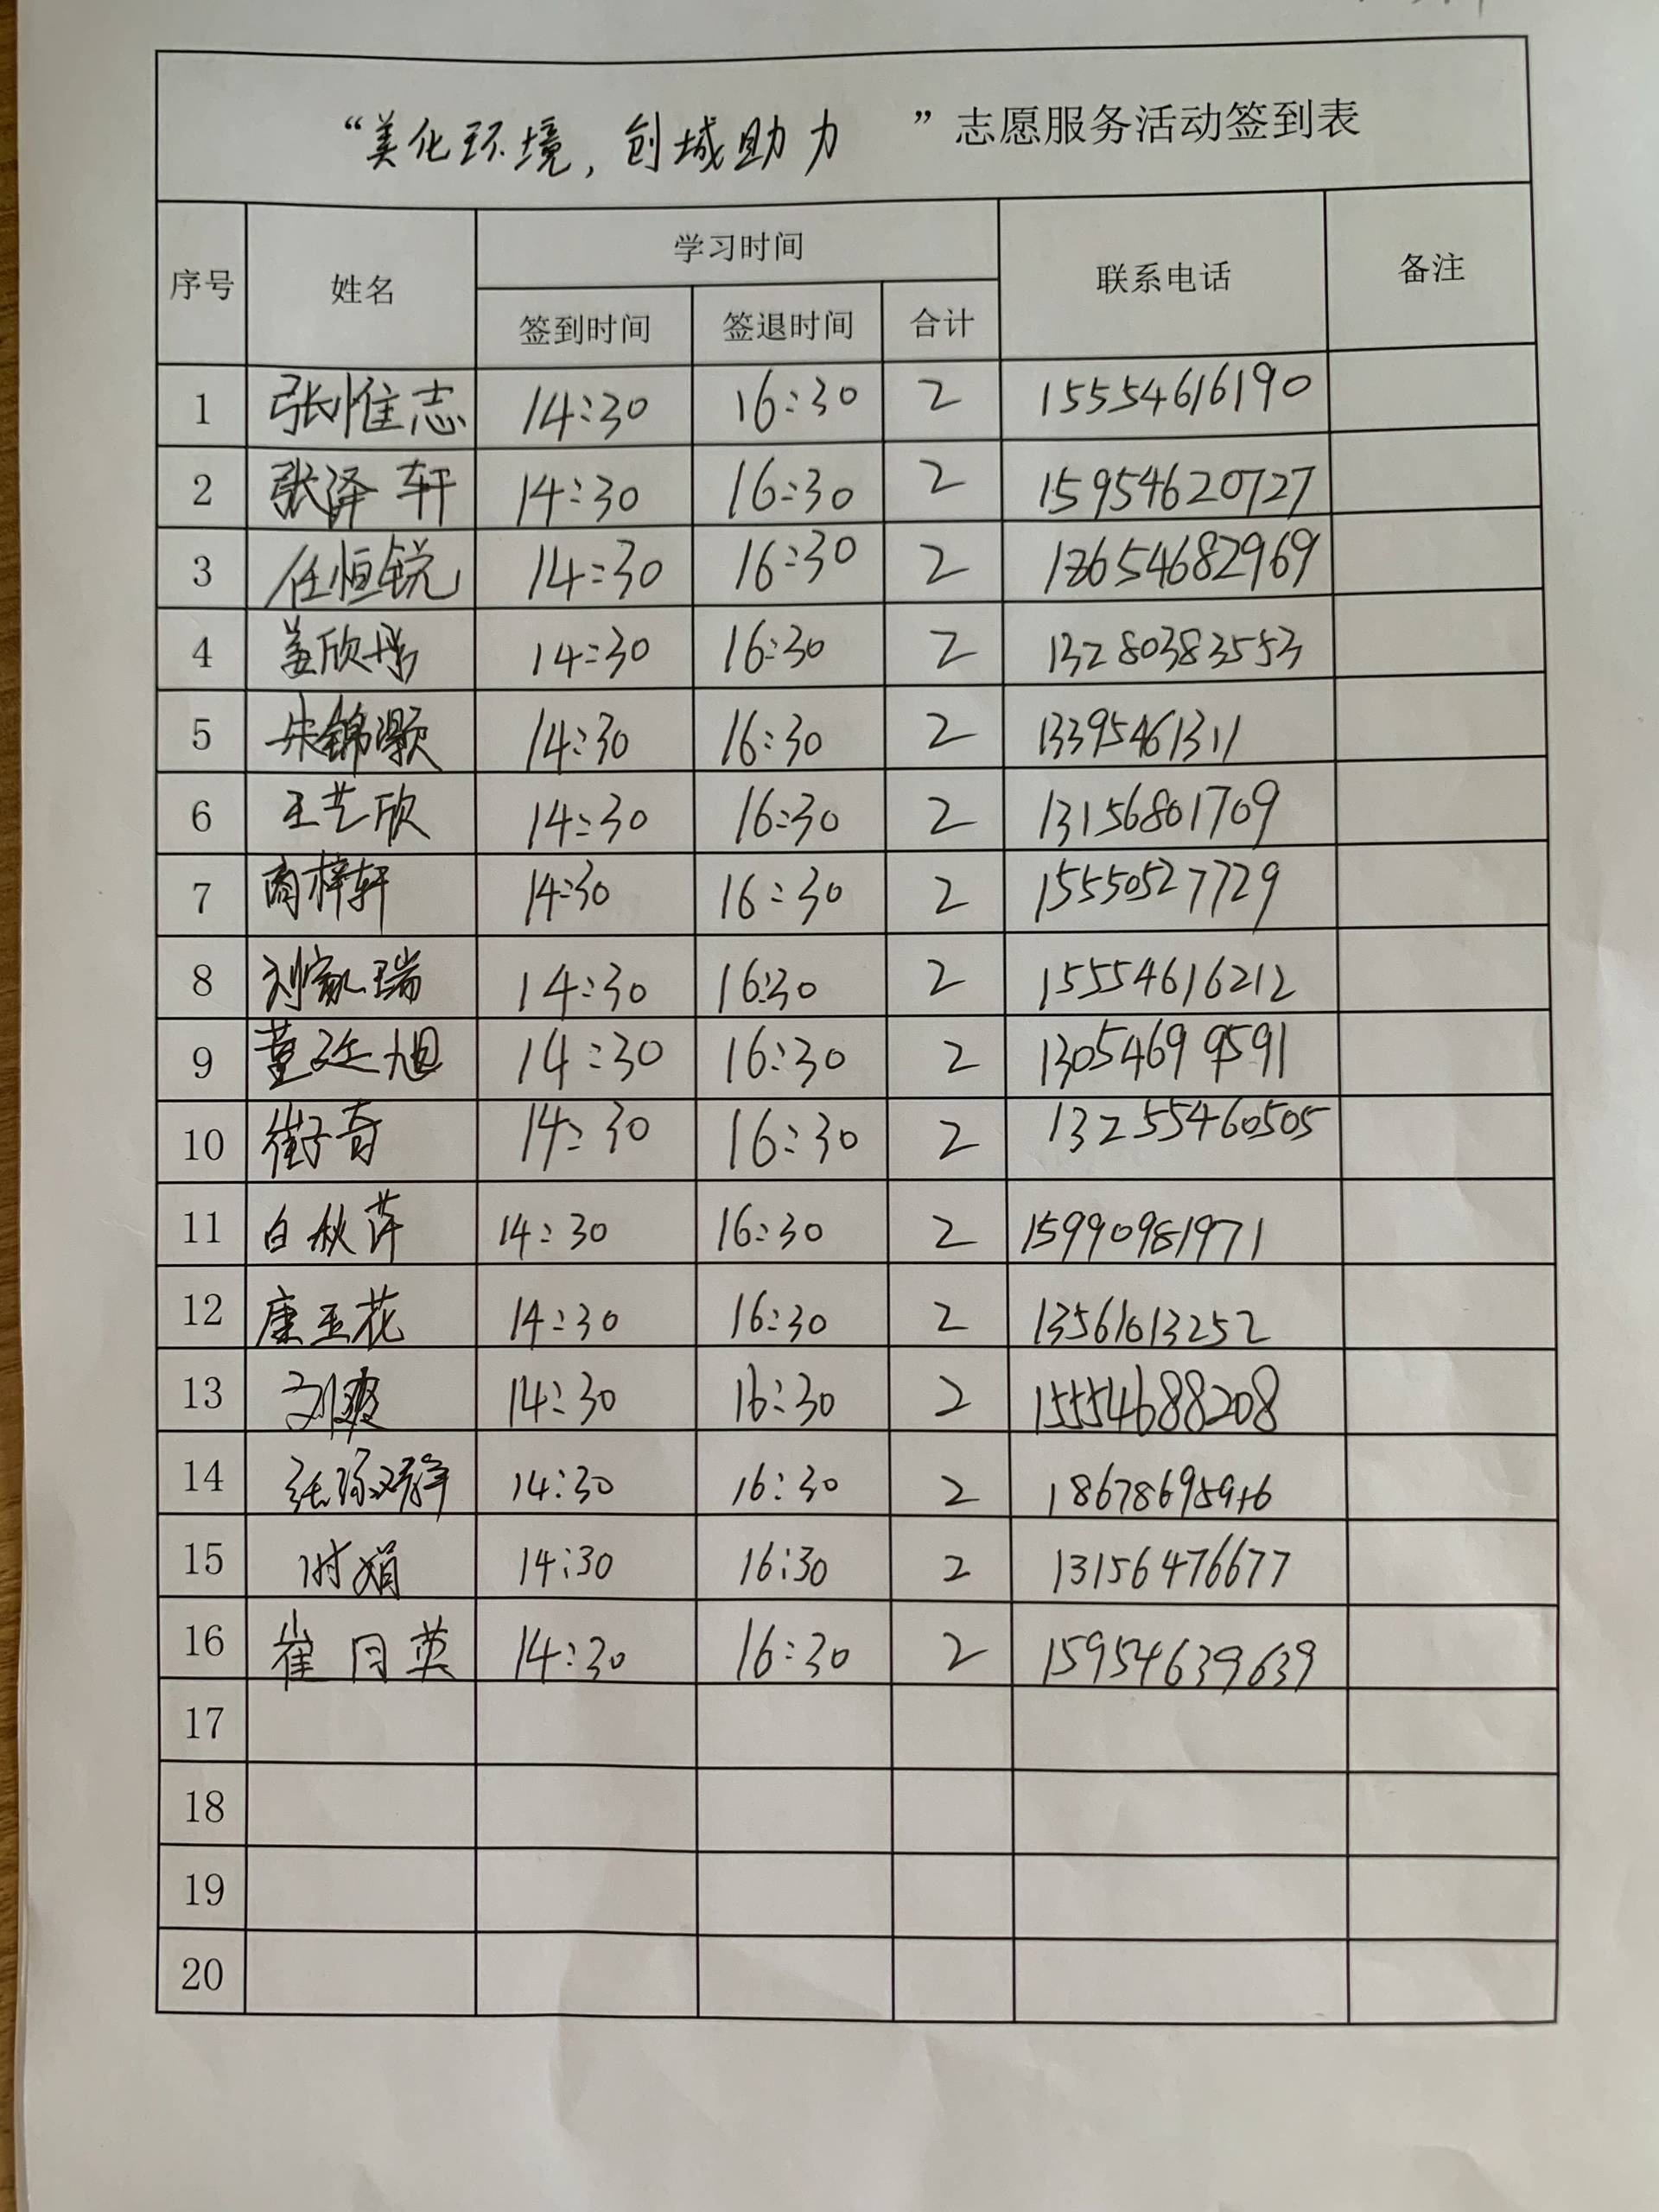 “美化环境，创城助力”志愿服务活动签到表
序号 姓名 学习时间 联系电话 备注
签到时间 签退时间 合计
1 张惟志 14:30 16:30 2 15554616190
2 张泽轩 14:30 16:30 2 15954620727
3 任恒锐 14:30 16:30 2 17654682969
4 盖欣彤 14:30 16:30 2 13280383553
5 朱锦灏 14:30 16:30 2 13395461311
6 王艺欣 14:30 16:30 2 13156801709
7 商梓轩 14:30 16:30 2 15550527729
8 刘家瑞 14:30 16:30 2 15554616212
9 董廷旭 14:30 16:30 2 13054699591
10 崔子奇 14:30 16:30 2 132555460505
11 白秋萍 14:30 16:30 2 15990981971
12 康玉花 14:30 16:30 2 13561013252
13 刘爽 14:30 16:30 2 15554688208
14 14:30 16:30 2
15 时娟 14:30 16:30 2 13156476677
16 崔月英 14:30 16:30 2 15954639639
17
18
19
20